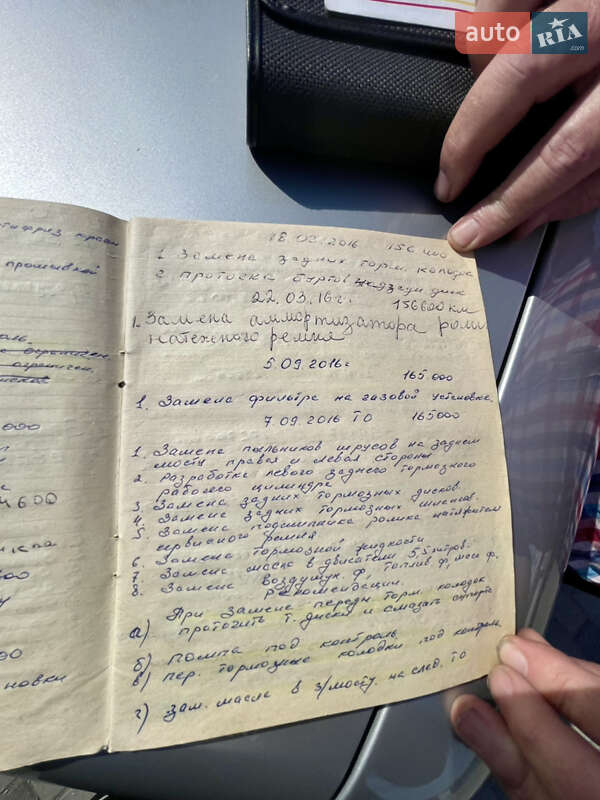 auto RIA .com
тифриз красн
промывкой
000
4600
000
новки
18.03.2016 156 400
1. Замена задних торм. колодок
2. проточка буртов задн диск
22.03.16г. 156600 км
1. Замена аммортизатора роли
натежного ремня
5.09.2016г
165.000
1. Замена фильтра на газовой установке.
7.09.2016 ТО 165000
1. Замена пыльников шрусов на заднем
мосту правая и левая стороны
2. Разработка левого заднего тормозного
рабочего цилиндра
3. Замена задних тормозных дисков.
4. Замена задних тормозных шлангов.
5. Замена подшипника ролика натяжителя
сервисного ремня
6. Замена тормозной жидкости
7. Замена масла в двигателе 5,5 литров.
8. Замена воздушн. ф, топлив ф, мас ф.
Рекомендации.
а) При замене передн торм. колодок
проточить т. диски и смазать суппорта
б) Помпа под контроль
в) пер. тормозные колодки под контроль
г) зам. масла в з/мосту на след. ТО